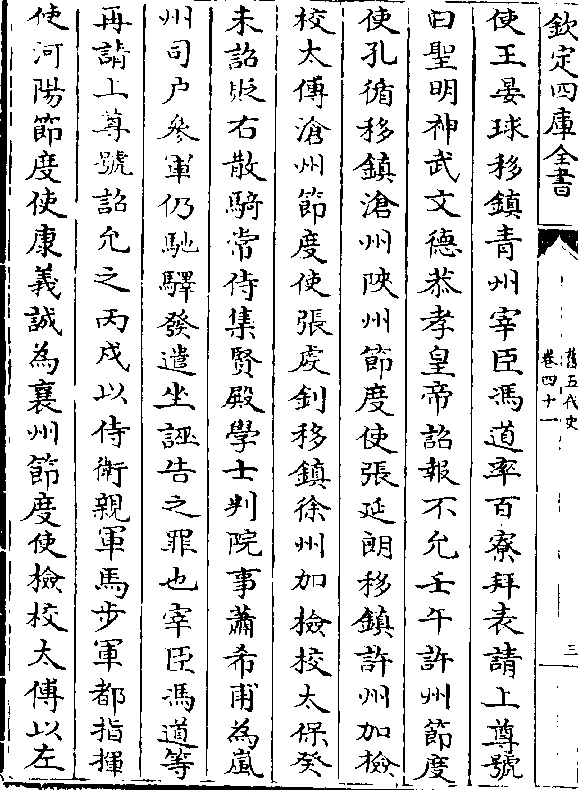 欽定四庫全書
舊五代史
卷四十一
三
使王晏球移鎮青州宰臣馮道率百寮拜表請上尊號
曰聖明神武文德恭孝皇帝詔報不允壬午許州節度
使孔循移鎮滄州陝州節度使張延朗移鎮許州加檢
校太傅滄州節度使張虔釗移鎮徐州加檢校太保癸
未詔貶右散騎常侍集賢殿學士判院事蕭希甫為嵐
州司户叅軍仍馳驛發遣坐誣告之罪也宰臣馮道等
再請上尊號詔允之丙戌以侍衛親軍馬步軍都指揮
使河陽節度使康義誠為襄州節度使檢校太傅以左